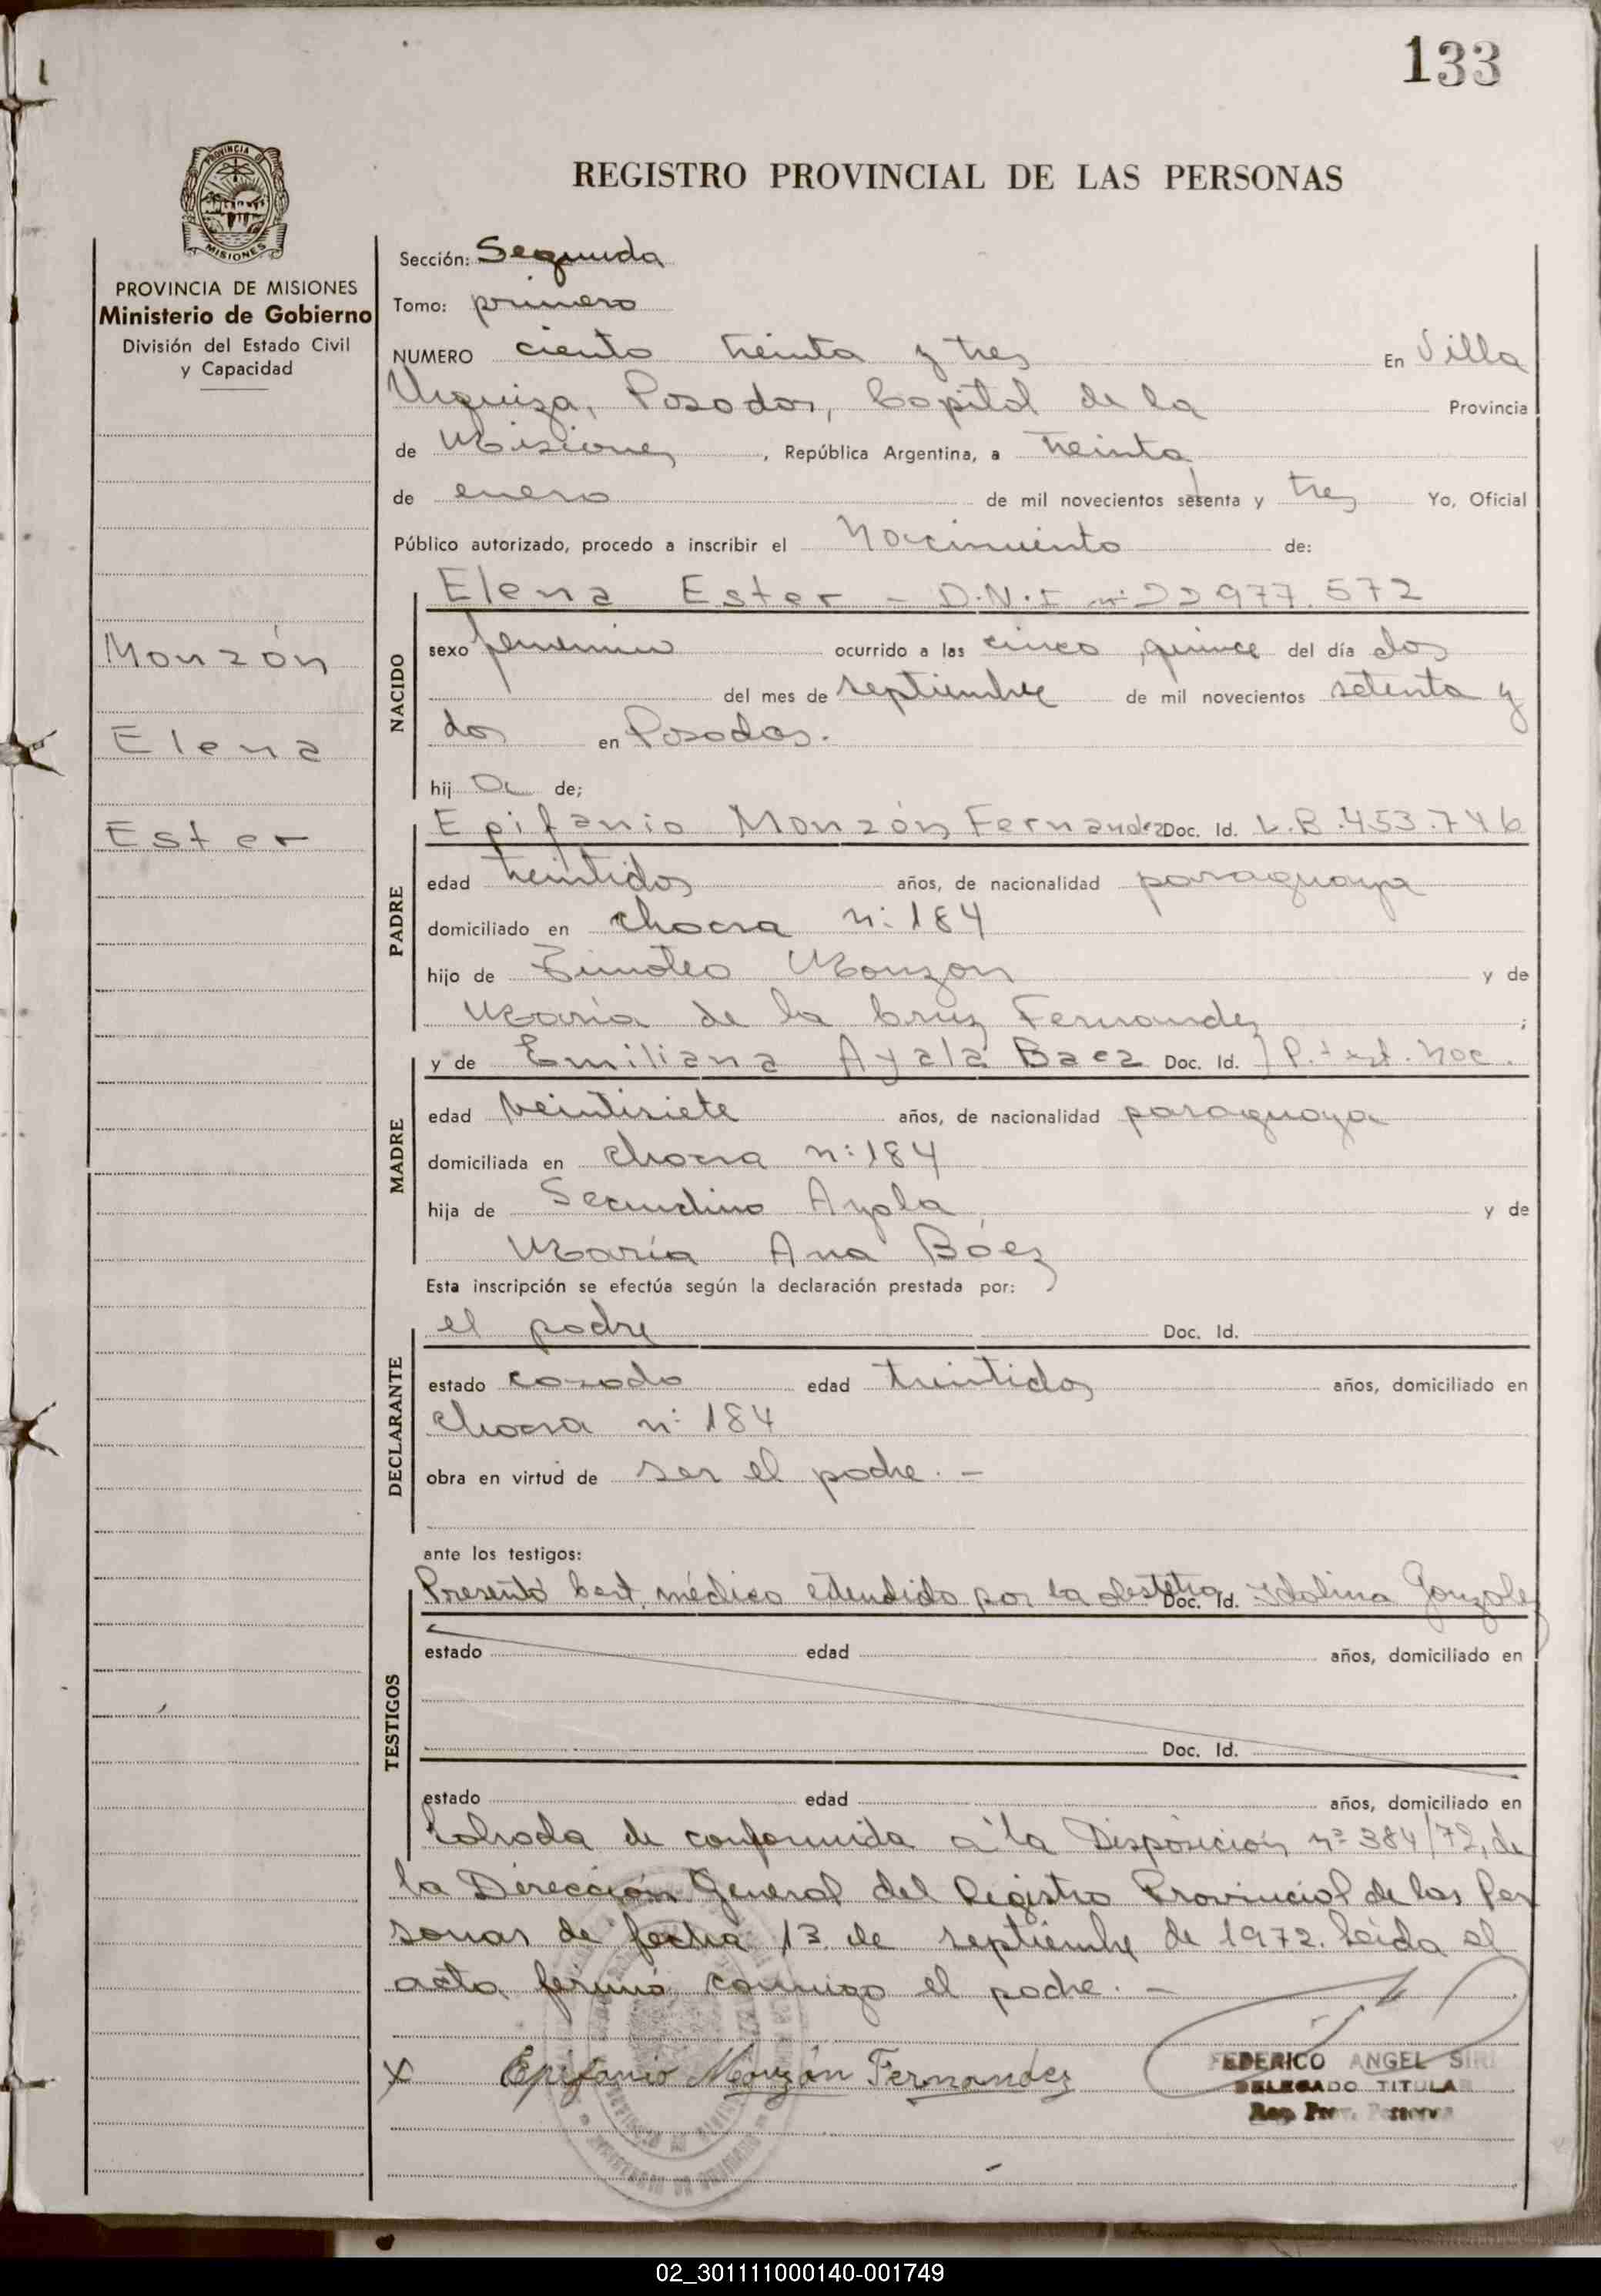 133
REGISTRO PROVINCIAL DE LAS PERSONAS
PROVINCIA DE MISIONES
Ministerio de Gobierno
División del Estado Civil
y Capacidad
Monzón
Elena
Ester
Sección: Segunda
Tomo: primero
NUMERO ciento treinta y tres En Villa
Urquiza, Posadas, Capital de la Provincia
de Misiones, República Argentina, a treinta
de enero de mil novecientos setenta y tres Yo, Oficial
Público autorizado, procedo a inscribir el Nacimiento de:
Elena Ester - D.N.I nº 22977.572
NACIDO
sexo femenino ocurrido a las cinco, quince del día dos
del mes de septiembre de mil novecientos setenta y
dos en Posadas.
hija de;
PADRE
Epifanio Monzón Fernandez Doc. Id. L.B.453.746
edad treintidos años, de nacionalidad paraguaya
domiciliado en chacra n: 184
hijo de Timoteo Monzon y de
María de la Cruz Fernandez;
MADRE
y de Emiliana Ayala Baez Doc. Id.
edad veintisiete años, de nacionalidad paraguaya
domiciliada en chacra n: 184
hija de Secundino Ayala y de
María Ana Báez
Esta inscripción se efectúa según la declaración prestada por:
DECLARANTE
el padre Doc. Id.
estado casado edad treintidos años, domiciliado en
chacra n: 184
obra en virtud de ser el padre. -
ante los testigos:
TESTIGOS
Presentó Cert. médico extendido por la obstetra Doc. Id. Idalina Gonzalez
estado edad años, domiciliado en
Doc. Id.
estado edad años, domiciliado en
Labrada de conformida a la Disposición nº 384/72, de
la Dirección General del Registro Provincial de las Per
sonas de fecha 13 de septiembre de 1972. Leída el
acta, firmó conmigo el padre. -
x Epifanio Monzón Fernandez
FEDERICO ANGEL
DELEGADO TITULAR
Reg. Prov. Personas
02_301111000140-001749